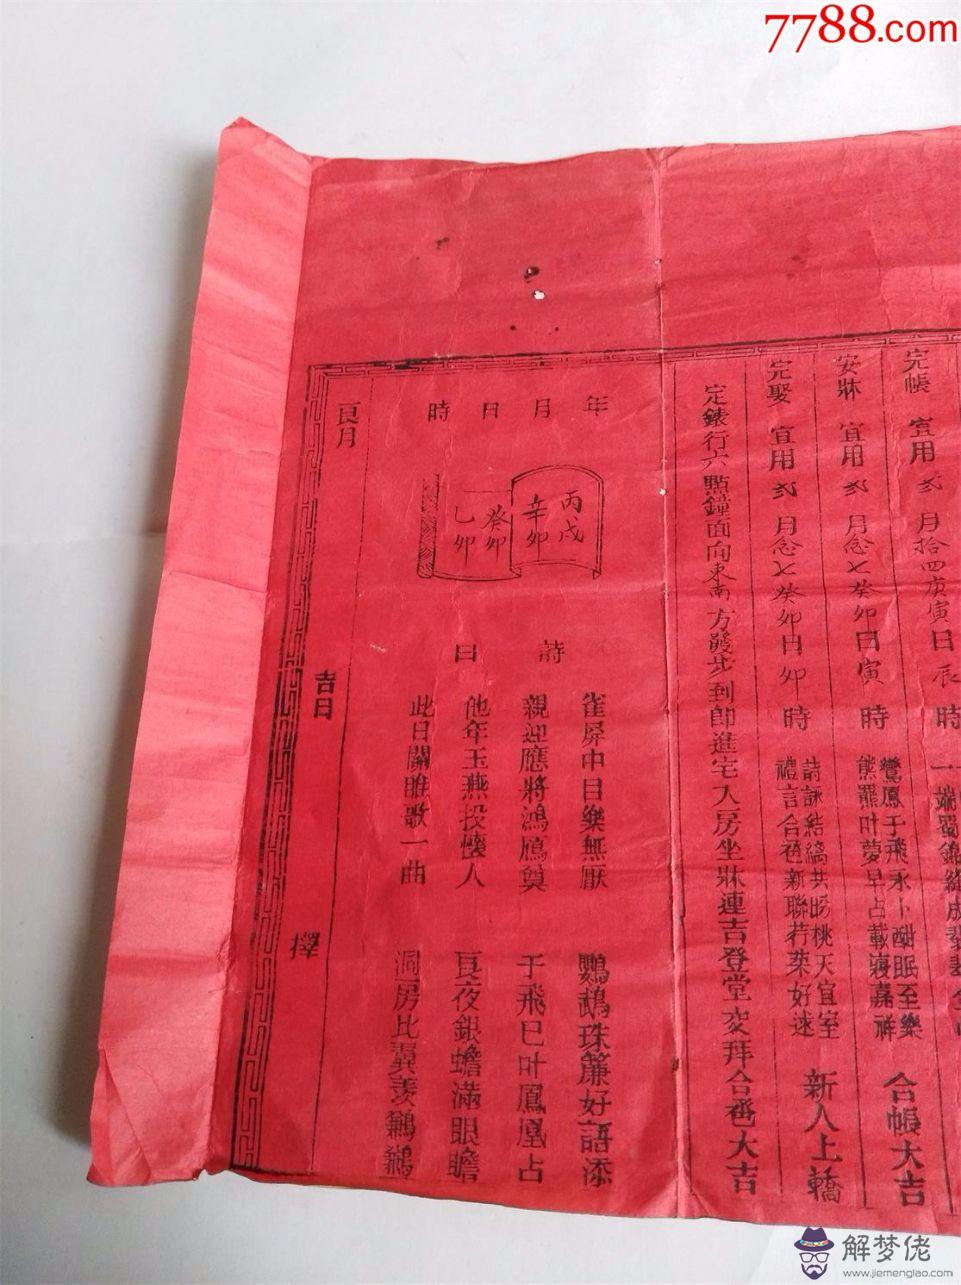 7788.com
完帳 宜用 弍 月拾四庚寅日辰時
合帳大吉
安牀 宜用 弍 月念七癸卯日寅 時
鸞鳳于飛永卜酣眠至樂
熊羆叶夢早占載寢嘉祥
完娶 宜用 弍 月念七癸卯日卯 時
詩詠結縭共賜桃夭宜室
禮言合卺新聯荇菜好逑
新人上轎
定錶行六點鐘面向東南方發步到即進宅入房坐牀連吉登堂交拜合卺大吉
年月日時
丙戌
辛卯
癸卯
乙卯
詩曰
雀屏中目樂無厭 鸚鵡珠簾好語添
親迎應將鴻鴈奠 于飛已叶鳳凰占
他年玉燕投懷人 夜銀蟾滿眼瞻
此日關雎歌一曲 洞房比翼羨鶼鶼
良月 吉日 擇
解梦佬
www.jiemenglao.com